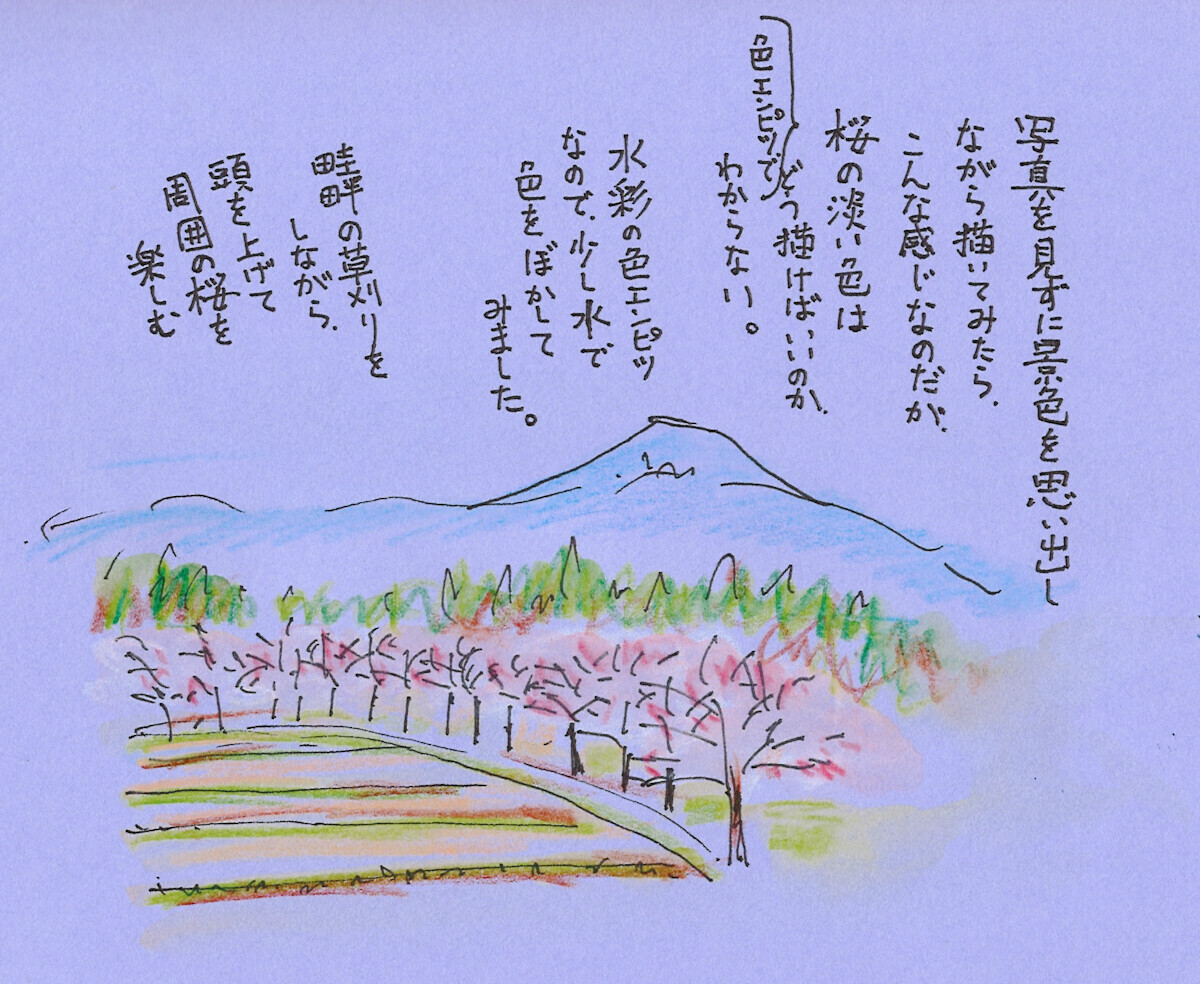 写真を見ずに景色を思い出し
ながら描いてみたら、
こんな感じなのだが、
桜の淡い色は
色エンピツで
どう描けばいいのか、
わからない。
水彩の色エンピツ
なので、少し水で
色をぼかして
みました。
畦畔の草刈りを
しながら、
頭を上げて
周囲の桜を
楽しむ